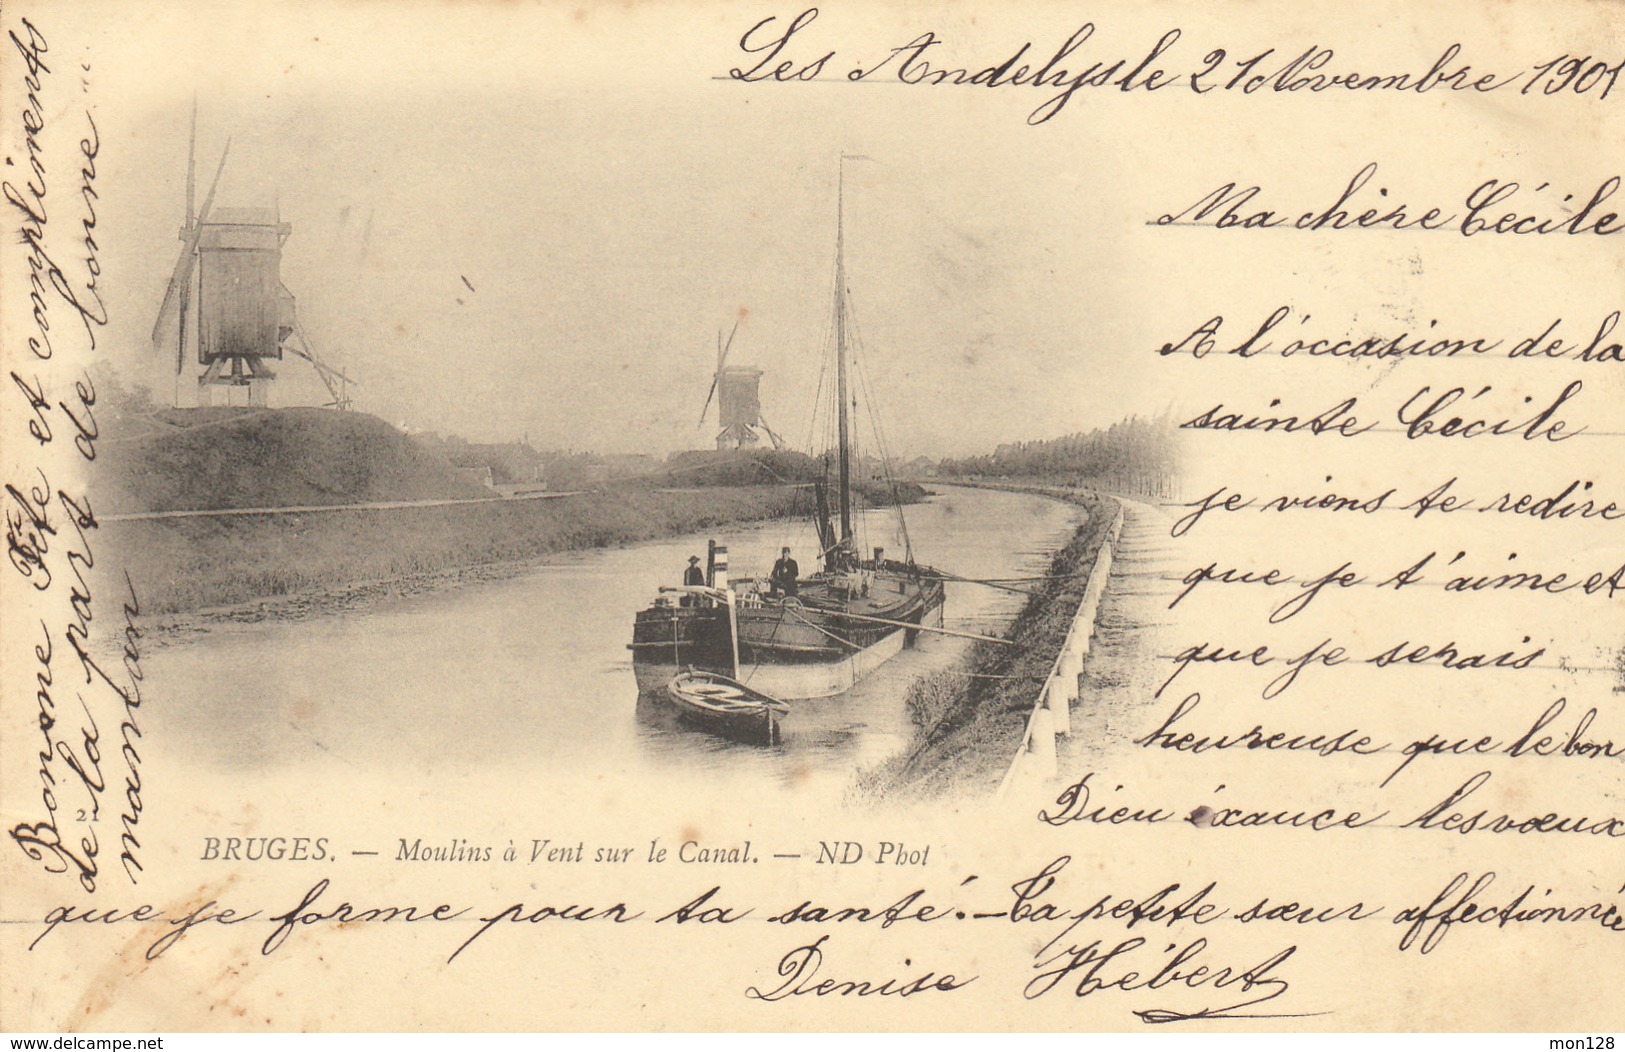 Les Andelys le 21 Novembre 1901
Ma chère Cécile
A l'occasion de la
sainte Cécile
je viens te redire
que je t'aime et
que je serais
heureuse que le bon
Dieu éxauce les vœux
que je forme pour ta santé. — Ta petite sœur affectionnée
Denise Hébert
Bonne Fête et compliments
de la part de bonne
maman
21
BRUGES. — Moulins à Vent sur le Canal. — ND Phot
www.delcampe.net
mon128